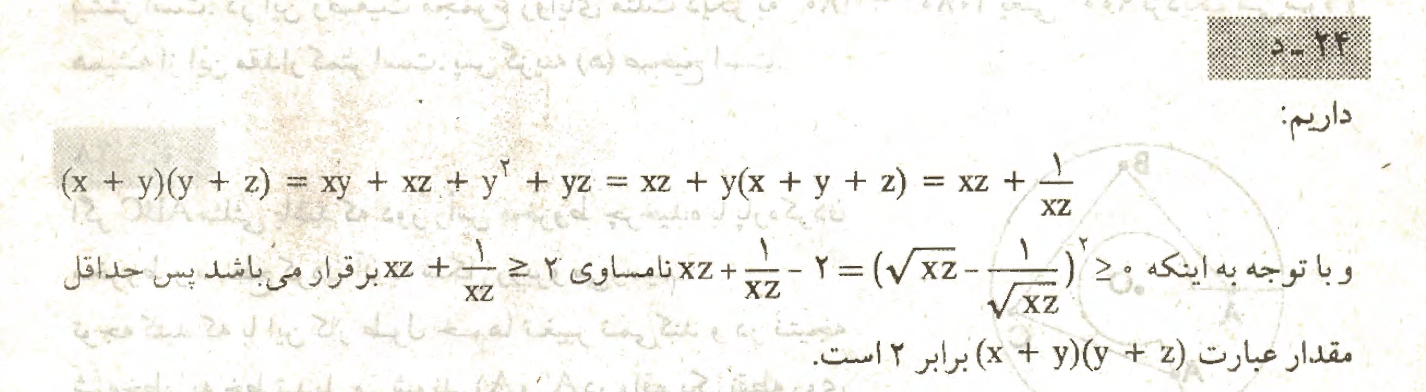 ۲۴ - د
داریم:
(x + y)(y + z) = xy + xz + y² + yz = xz + y(x + y + z) = xz + ۱/xz
و با توجه به اینکه ۰ ≤ (√xz - ۱/√xz)² = xz + ۱/xz - ۲ نامساوی xz + ۱/xz ≥ ۲ برقرار می‌باشد پس حداقل
مقدار عبارت (x + y)(y + z) برابر ۲ است.